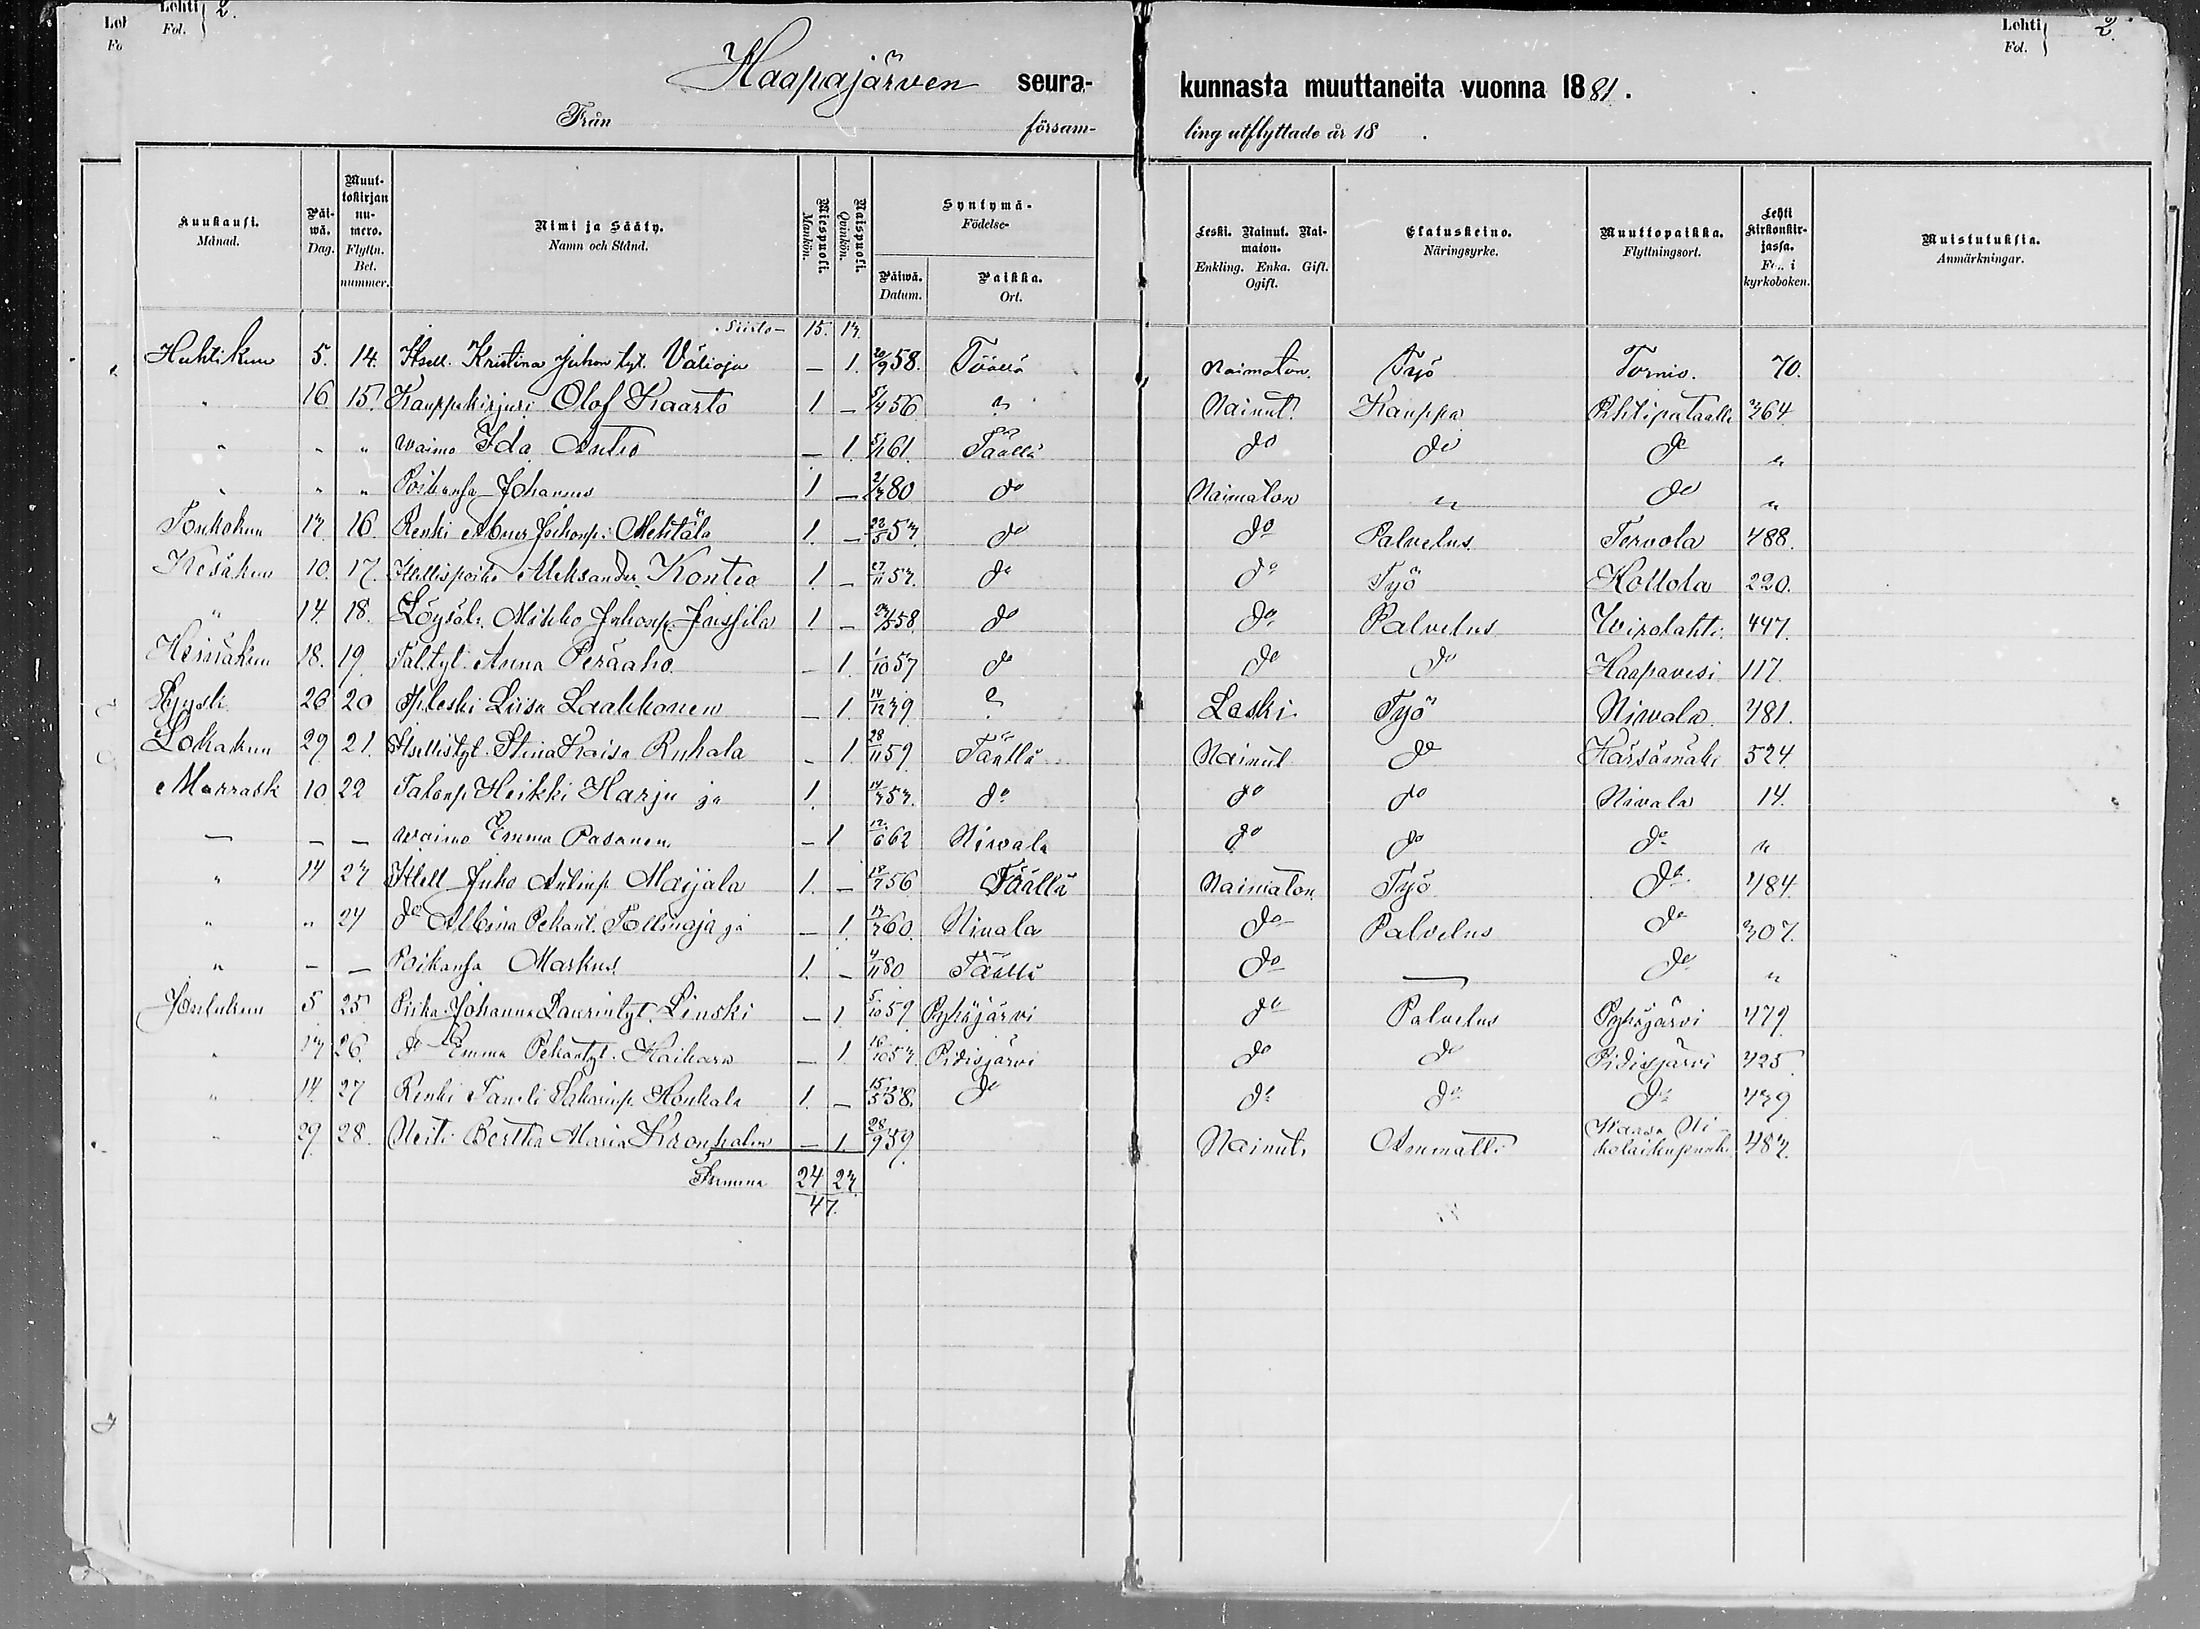 Lehti 2.
Fol.
Lehti 2.
Fol.
Haapajärven seurakunnasta muuttaneita vuonna 1881.
Från försam-ling utflyttade år 18 .
Kuukausi. Månad. Päiwä. Dag. Muuttokirjan numero. Flyttn. Bet. nummer. Nimi ja Sääty. Namn och Stånd. Miespuoli. Mankön. Naispuoli. Qvinkön. Syntymä- Födelse- Päiwä. Datum. Paikka. Ort. Leski. Nainut. Naimaton. Enkling. Enka. Gift. Ogift. Elatuskeino. Näringsyrke. Muuttopaikka. Flyttningsort. Lehti kirkonkirjassa. Fol. i kyrkoboken. Muistutuksia. Anmärkningar.
Siirto 15. 13.
Huhtikuu 5. 14. Itsell. Kristina Juhon tyt. Välioja — 1. 20/9 58. Täällä Naimaton. Työ Tornio. 70.
" 16 15. Kauppakirjuri Olof Kaarto 1 — 56 " Nainut. Kauppa 364
" " " waimo Ida — 1. 61. Täällä do do do "
" " " Poikansa Johannes 1 — 80 do Naimaton " do "
Toukokuu 13. 16. Renki Juhonp. Mehtälä 1. — 22/5 53. do do Palvelus Tervola 488.
Kesäkuu 10. 17. Itsellispoika Aleksander Kontio 1. — 27/11 53. do do Työ Hollola 220.
" 14. 18. Löysäl. Mikko Juhonp. Jussila 1. — 58. do do Palvelus Wirolahti 447.
Heinäkuu 18. 19. Tal.tyt. Anna Peräaho. — 1. 1/10 57 do do do Haapavesi 117.
Syysk. 26 20 Itsleski Liisa Laakkonen — 1. 14/12 39 " Leski Työ Nivala. 481.
Lokakuu 29 21. Itsellistyt. Stina Kaisa Ruhala — 1. 28/11 59. Täällä Nainut do Kärsämäki 524
Marrask 10 22 Talonp Heikki Harju ja 1. 14/3 53. do do do Nivala 14.
— — — waimo Emma Pasanen. — 1 12/6 62 Nivala do do do "
" 14 23 Itsell Juho Antinp Maijala 1. — 56 Täällä Naimaton Työ do 484
" " 24 do Albina Pekant. Tollinoja ja — 1. 60. Nivala do Palvelus do 307.
" — — Poikansa Markus. 1. — 4/11 80 Täällä do — do "
Joulukuu 5 25 Piika Johanna Laurintyt. Linski — 1. 5/10 59 Pyhäjärvi do Palvelus Pyhäjärvi 479
" 13 26. do Emma Pekantyt. Haikara — 1. 16/10 53. Pidisjärvi do do Pidisjärvi 425
" 14. 27 Renki Taneli Sakarinp. Honkala 1. — 15/5 58. do do do do 439
" 29. 28. Neiti Bertha Maria Kronholm — 1. 28/9 59. Nainut. Ammatti Nikolainkaupunki 483.
Summa 24 23.
47.